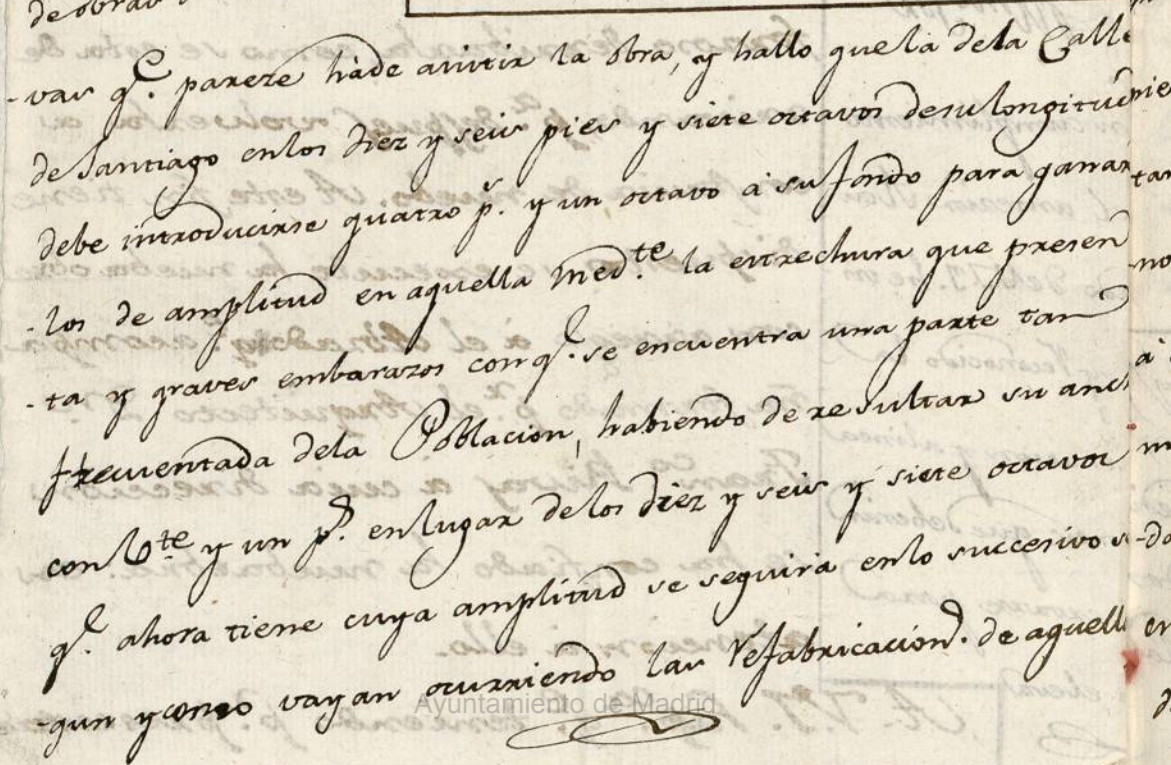 de obras
-vas q.e pareze hàde asistir la obra, y hallo que la dela Calle
de Santiago en los diez y seis pies y siete octavos desu longitud
debe introducirse quatro p.s y un octavo à su fondo para ganar
-los de amplitud en aquella med.te la estrechura que presen
-ta y graves embarazos con q.e se encuentra una parte tan
frequentada dela Poblacion, habiendo de resultar su anch
con Vte y un p.s en lugar de los diez y seis y siete octavos
q.e ahora tiene cuya amplitud se seguirà enlo succesivo se
-gun y como vayan ocurriendo las Refabricacion.s de aquell
Ayuntamiento de Madrid